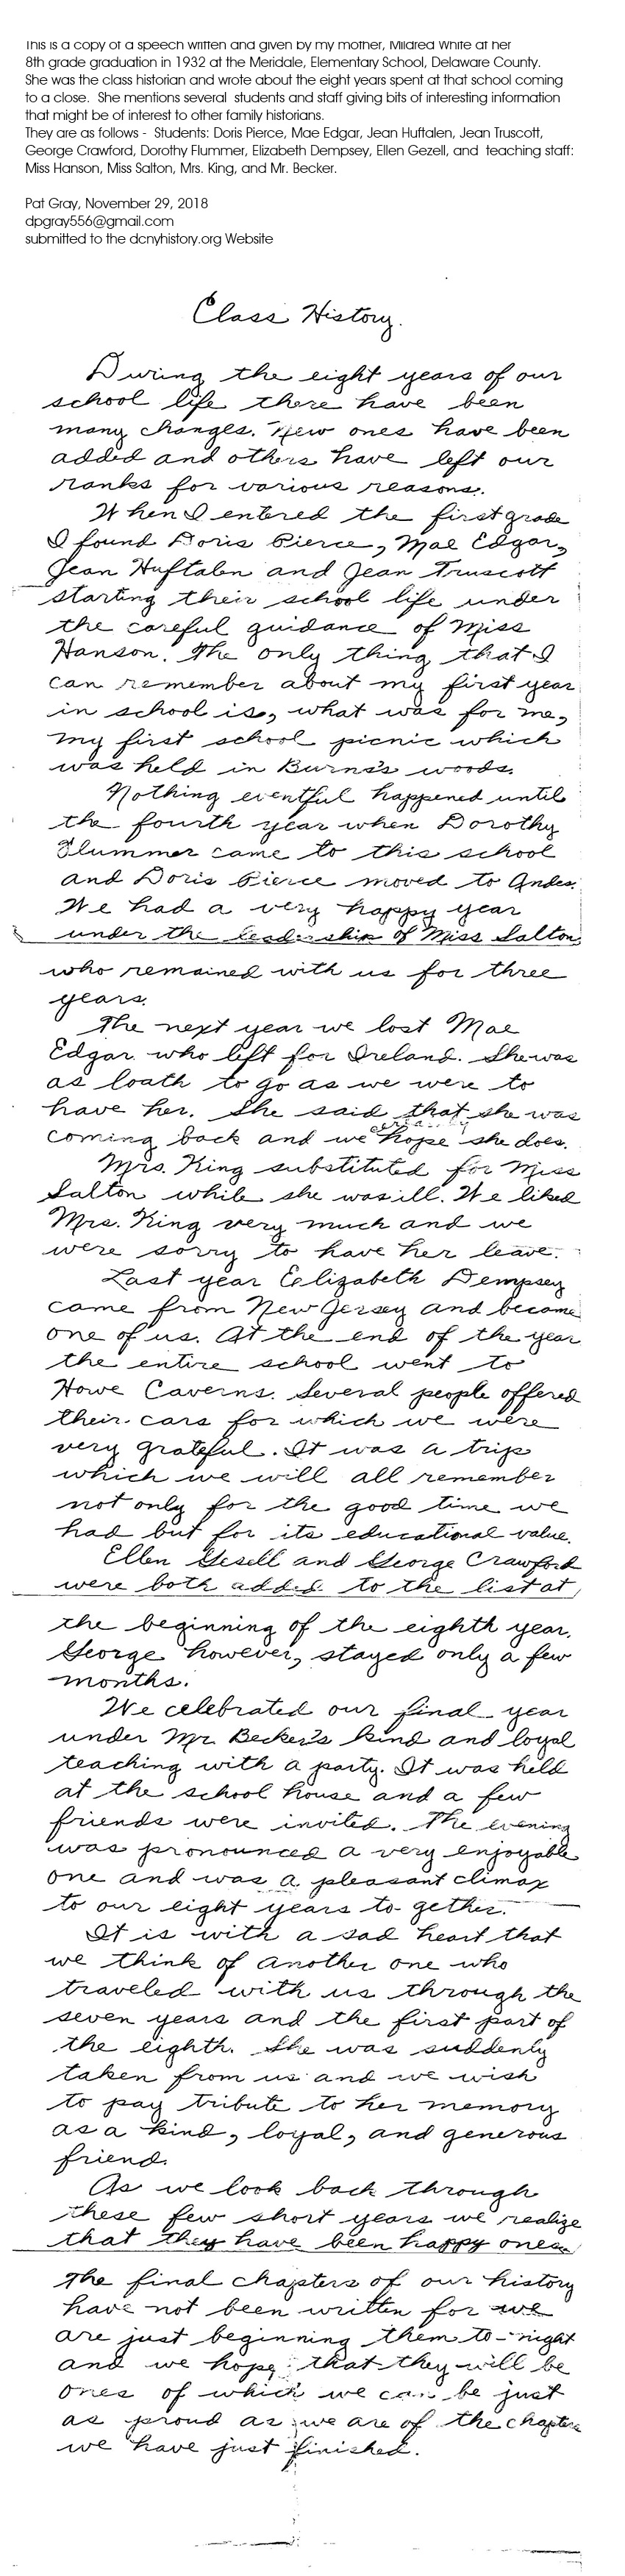 This is a copy of a speech written and given by my mother, Mildred White at her
8th grade graduation in 1932 at the Meridale, Elementary School, Delaware County.
She was the class historian and wrote about the eight years spent at that school coming
to a close.  She mentions several  students and staff giving bits of interesting information
that might be of interest to other family historians.
They are as follows -  Students: Doris Pierce, Mae Edgar, Jean Huftalen, Jean Truscott,
George Crawford, Dorothy Flummer, Elizabeth Dempsey, Ellen Gezell, and  teaching staff:
Miss Hanson, Miss Salton, Mrs. King, and Mr. Becker.
Pat Gray, November 29, 2018
dpgray556@gmail.com
submitted to the dcnyhistory.org Website
Class History.
During the eight years of our
school life there have been
many changes. New ones have been
added and others have left our
ranks for various reasons.
When I entered the first grade
I found Doris Pierce, Mae Edgar,
Jean Huftalen and Jean Truscott
starting their school life under
the careful guidance of Miss
Hanson. The only thing that I
can remember about my first year
in school is, what was for me,
my first school picnic which
was held in Burns's woods.
Nothing eventful happened until
the fourth year when Dorothy
Flummer came to this school
and Doris Pierce moved to Andes.
We had a very happy year
under the leadership of Miss Salton
who remained with us for three
years.
The next year we lost Mae
Edgar who left for Ireland. She was
as loath to go as we were to
have her. She said that she was
coming back and we hope she does.
Mrs. King substituted for Miss
Salton while she was ill. We liked
Mrs. King very much and we
were sorry to have her leave.
Last year Eelizabeth Dempsey
came from New Jersey and became
one of us. At the end of the year
the entire school went to
Howe Caverns. Several people offered
their cars for which we were
very grateful. It was a trip
which we will all remember
not only for the good time we
had but for its educational value.
Ellen Gesell and George Crawford
were both added to the list at
the beginning of the eighth year.
George however, stayed only a few
months.
We celebrated our final year
under Mr. Becker's kind and loyal
teaching with a party. It was held
at the school house and a few
friends were invited. The evening
was pronounced a very enjoyable
one and was a pleasant climax
to our eight years to gether.
It is with a sad heart that
we think of another one who
traveled with us through the
seven years and the first part of
the eighth. She was suddenly
taken from us and we wish
to pay tribute to her memory
as a kind, loyal, and generous
friend.
As we look back through
these few short years we realize
that they have been happy ones.
The final chapters of our history
have not been written for we
are just beginning them to-night
and we hope that they will be
ones of which we can be just
as proud as we are of the chapters
we have just finished.